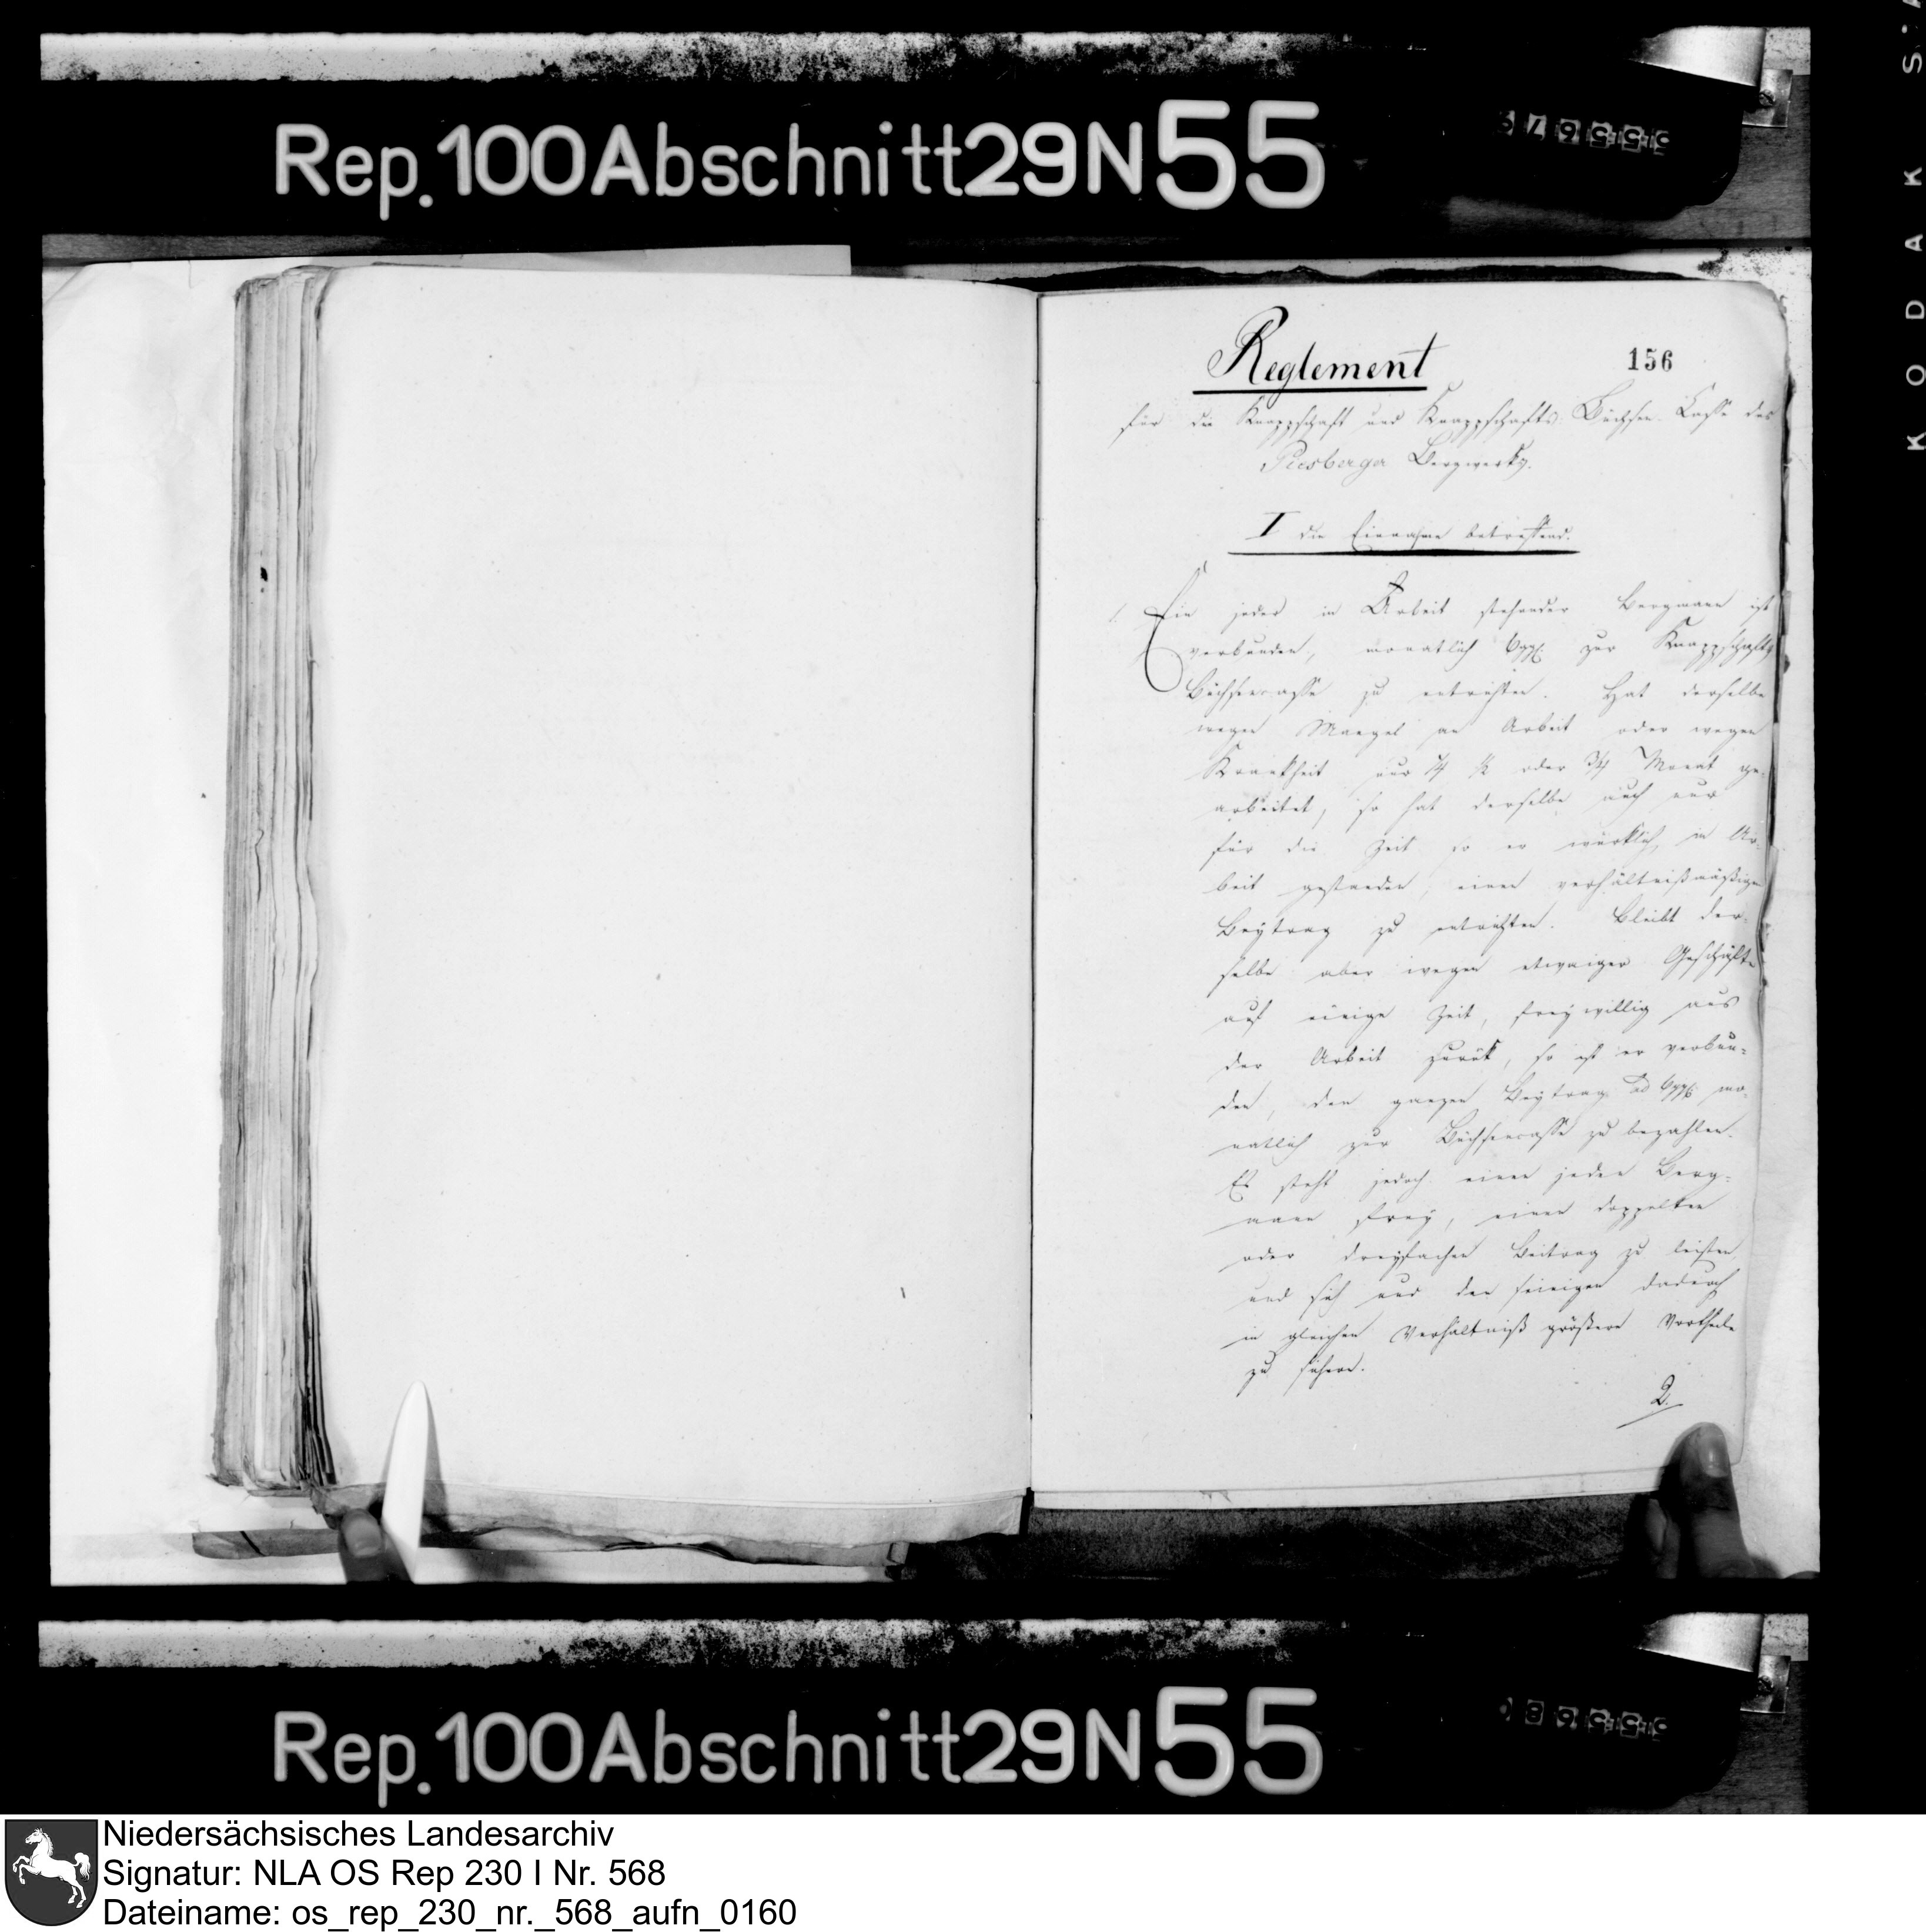 Rep. 100 Abschnitt 29 N 55
KODAK S
Reglement
156
für die Knappschaft und Knappschafts Büchsen-Casse des
Piesberger Bergwerks.
I die Einnahme betreffend.
1. Ein jeder in Arbeit stehender Bergmann ist
verbunden, monatlich 6 ggl. zur Knappschafts
Büchsencasse zu entrichten. Hat derselbe
wegen Mangel an Arbeit oder wegen
Krankheit nur 1/4 1/2 oder 3/4 Monat ge-
arbeitet, so hat derselbe auch nur
für die Zeit so er würklich in Ar-
beit gestanden, einen verhältnißmäßigen
Beytrag zu entrichten. Bleibt der-
selbe aber wegen etwaiger Geschäfte
auf einige Zeit, freywillig aus
der Arbeit zurük, so ist er verbun-
den, den ganzen Beytrag ad 6 ggl. mo-
natlich zur Büchsencasse zu bezahlen.
Es steht jedoch einen jeden Berg-
mann frey, einen doppelten
oder dreyfachen Beitrag zu leisten
und sich und den seinigen dadurch
in gleichen Verhältniß größere Vortheile
zu sichern.
2.
Rep. 100 Abschnitt 29 N 55
Niedersächsisches Landesarchiv
Signatur: NLA OS Rep 230 I Nr. 568
Dateiname: os_rep_230_nr._568_aufn_0160